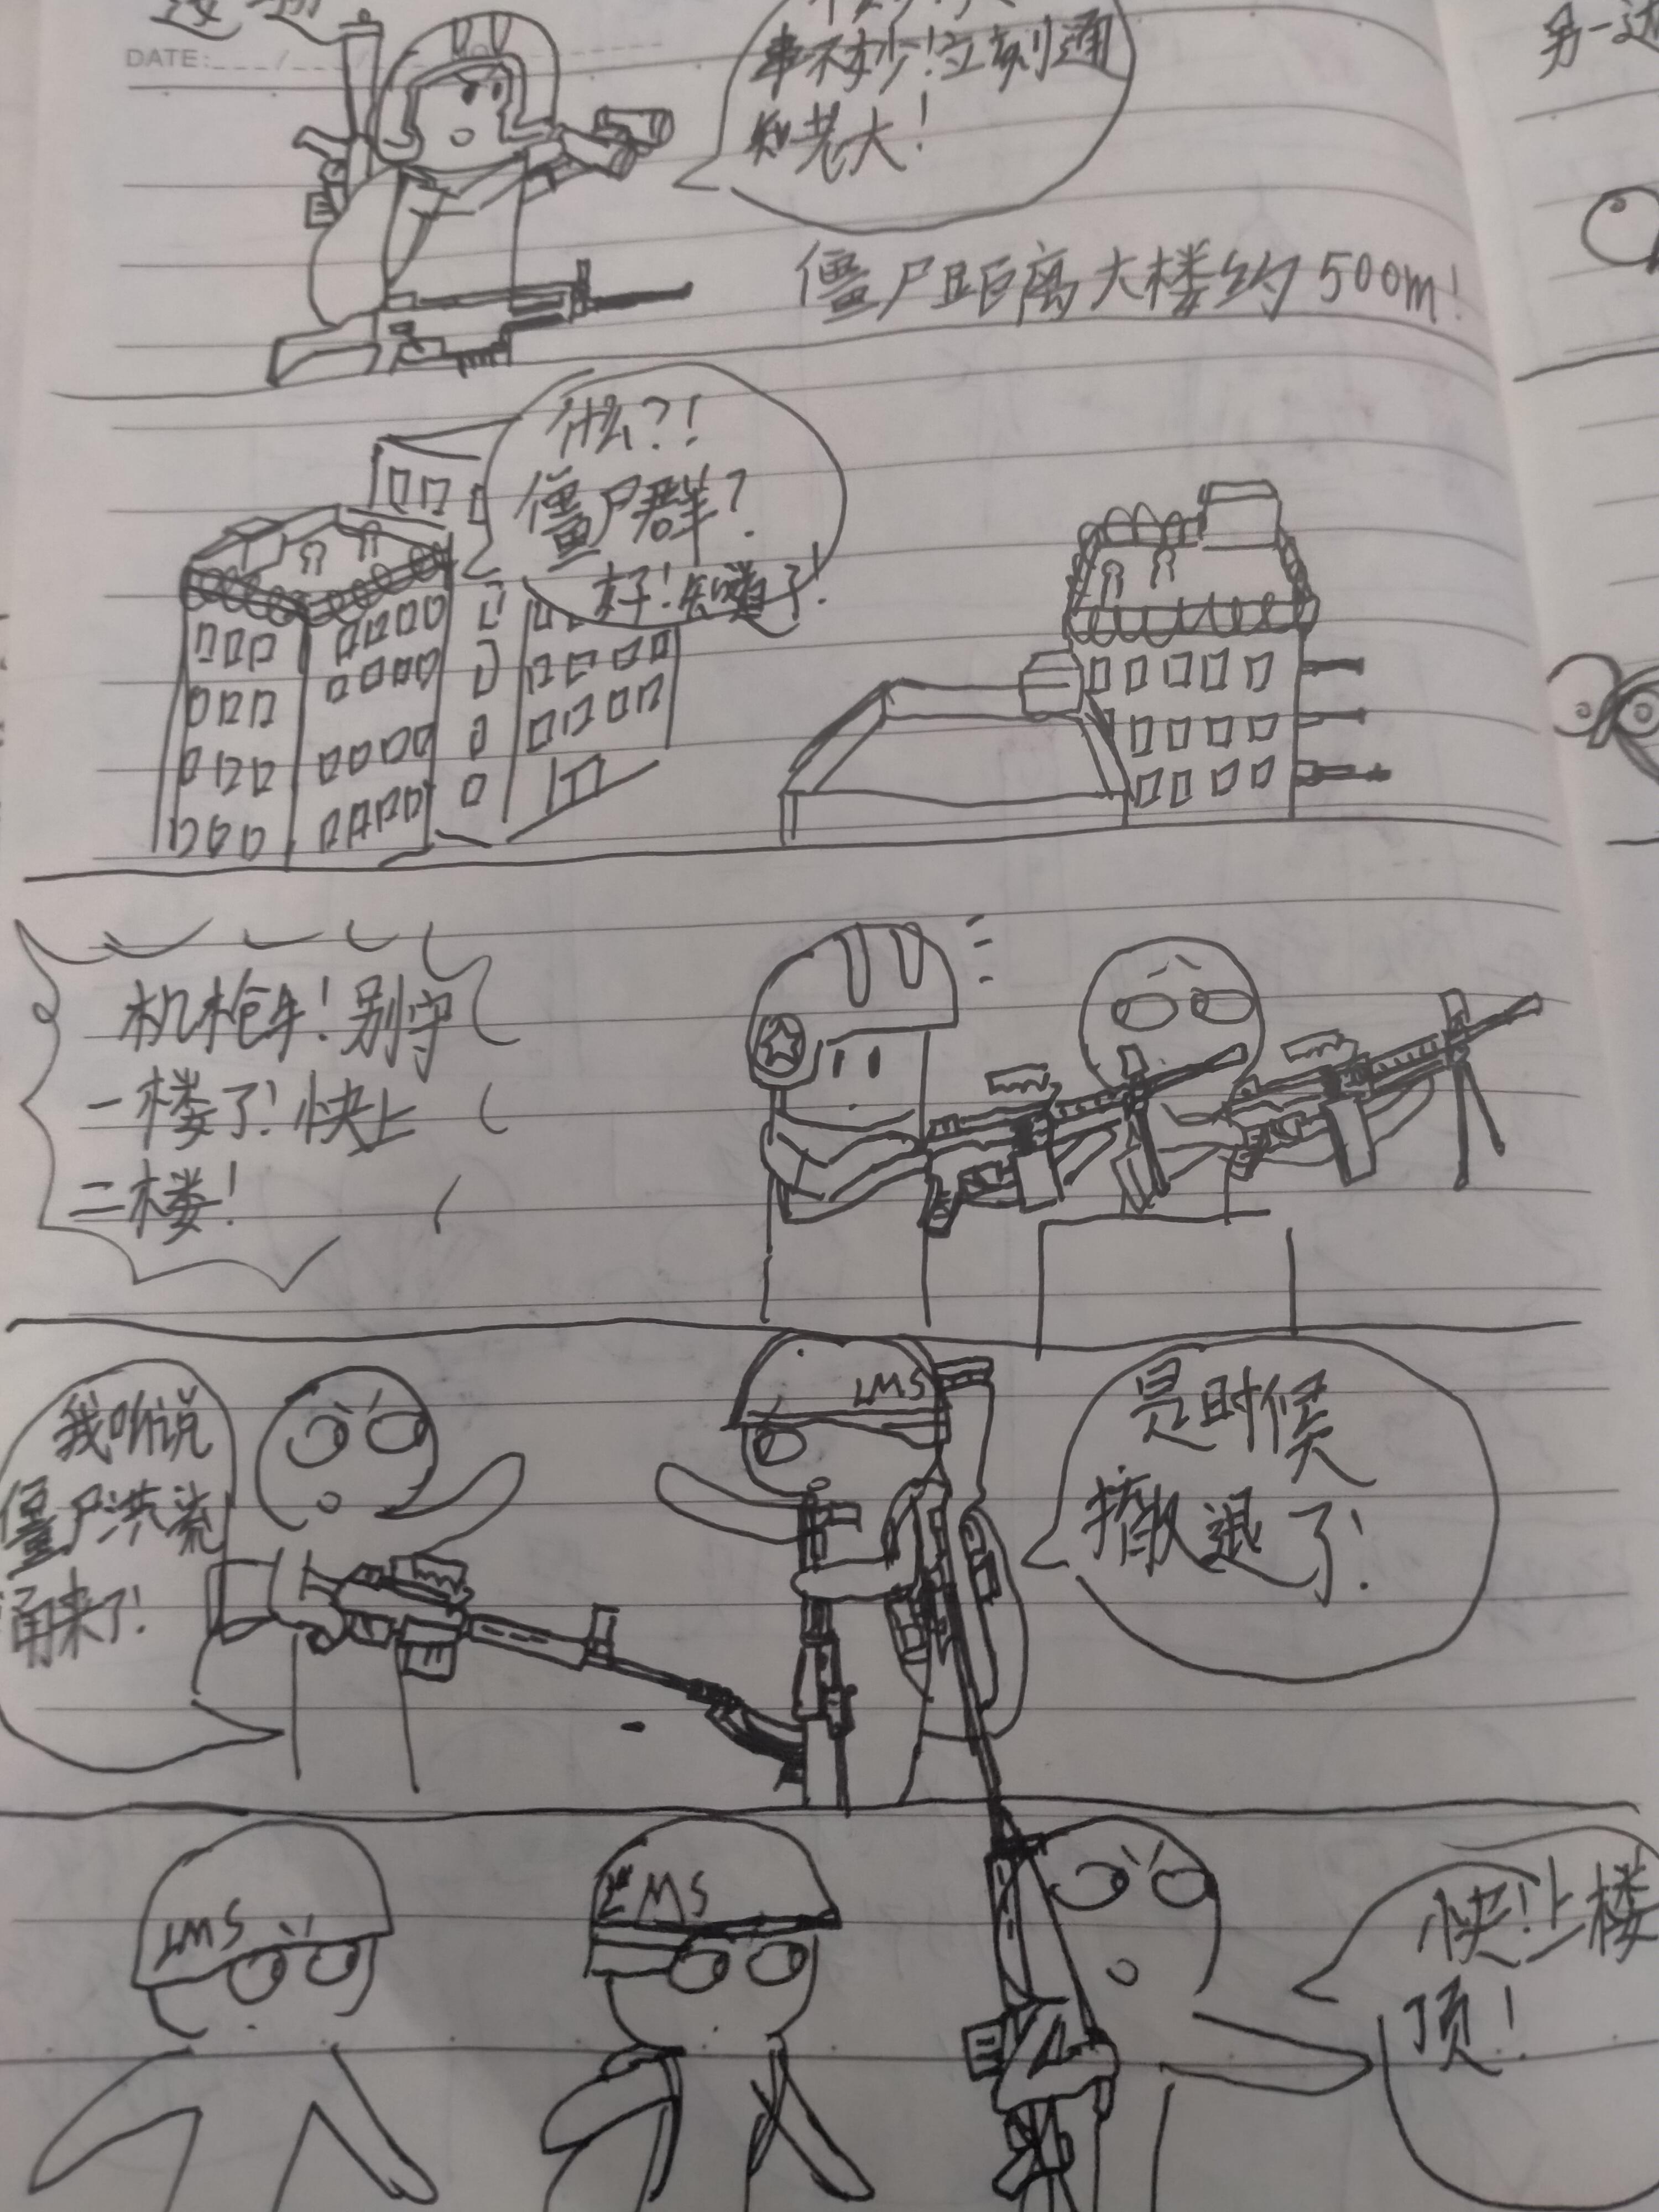 DATE:
事不妙!立刻通
知老大!
僵尸距离大楼约500m!
什么?!
僵尸群?
好!知道了!
机枪车!别守
一楼了!快上
二楼!
我听说
僵尸洪流
涌来了!
LMS
是时候
撤退了!
LMS
LMS
快!上楼
顶!
另一边